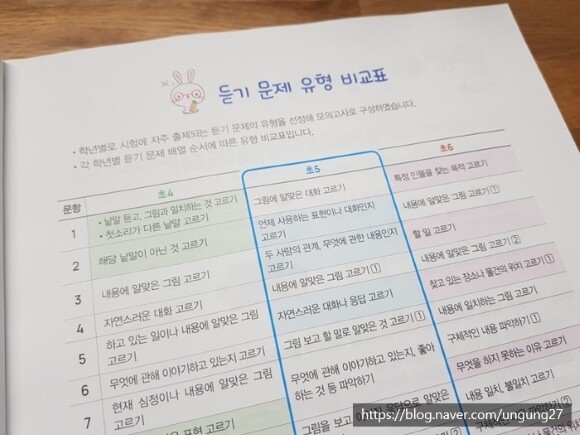 듣기 문제 유형 비교표
• 학년별로 시험에 자주 출제되는 듣기 문제의 유형을 선정해 모의고사로 구성하였습니다.
• 각 학년별 듣기 문제 배열 순서에 따른 유형 비교표입니다.
문항
초4
초5
초6
1
• 낱말 듣고, 그림과 일치하는 것 고르기
• 첫소리가 다른 낱말 고르기
그림에 알맞은 대화 고르기
특정 인물을 찾는 목적 고르기
2
해당 낱말이 아닌 것 고르기
언제 사용하는 표현이나 대화인지
고르기
내용에 알맞은 그림 고르기 ①
3
내용에 알맞은 그림 고르기
두 사람의 관계, 무엇에 관한 내용인지
고르기
할 일 고르기
4
자연스러운 대화 고르기
내용에 알맞은 그림 고르기 ①
내용에 알맞은 그림 고르기 ②
5
하고 있는 일이나 내용에 알맞은 그림
고르기
자연스러운 대화나 응답 고르기
찾고 있는 장소나 물건의 위치 고르기 ①
6
무엇에 관해 이야기하고 있는지 고르기
그림 보고 할 말로 알맞은 것 고르기 ①
내용에 일치하는 그림 고르기
7
현재 심정이나 내용에 알맞은 그림
고르기
무엇에 관해 이야기하고 있는지, 좋아
하는 것 등 파악하기
구체적인 내용 파악하기 ①
표현 고르기
그림을 보고
알맞은
무엇을 하지 못하는 이유 고르기
내용 일치, 불일치 고르기
구체적인
https://blog.naver.com/ungung27